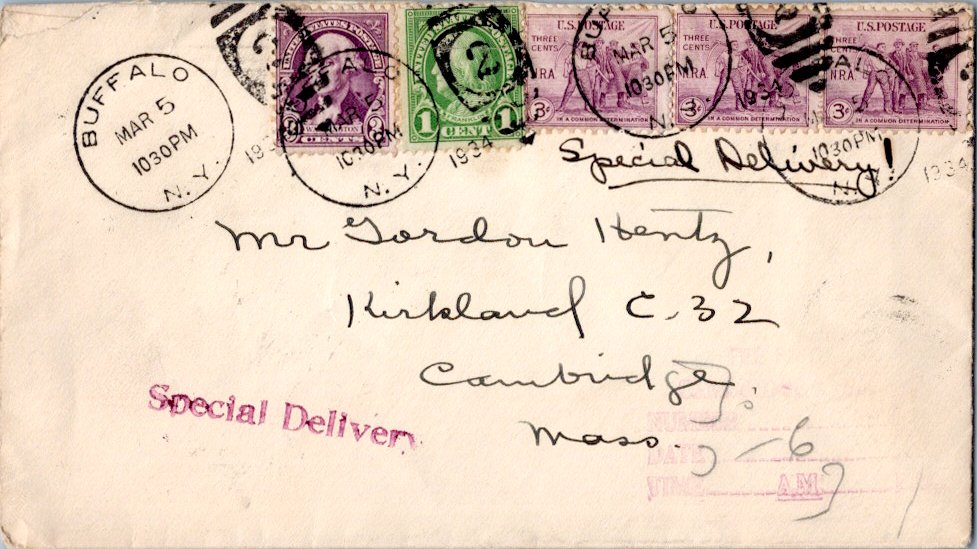 BUFFALO
MAR 5
1030PM
N.Y.
1934
UNITED STATES POSTAGE
WASHINGTON
3 CENTS 3
UNITED STATES POSTAGE
FRANKLIN
1 CENT 1
1030PM
N.Y.
1934
U.S. POSTAGE
THREE CENTS
NRA
3¢
IN A COMMON DETERMINATION
BUFFALO
MAR 5
1030PM
N.Y.
1934
U.S. POSTAGE
THREE CENTS
NRA
3¢
IN A COMMON DETERMINATION
U.S. POSTAGE
THREE CENTS
NRA
3¢
IN A COMMON DETERMINATION
1030PM
N.Y.
1934
Special Delivery!
Mr Gordon Hentz,
Kirkland C-32
Cambridge,
Mass.
Special Delivery
NUMBER
DATE
TIME AM